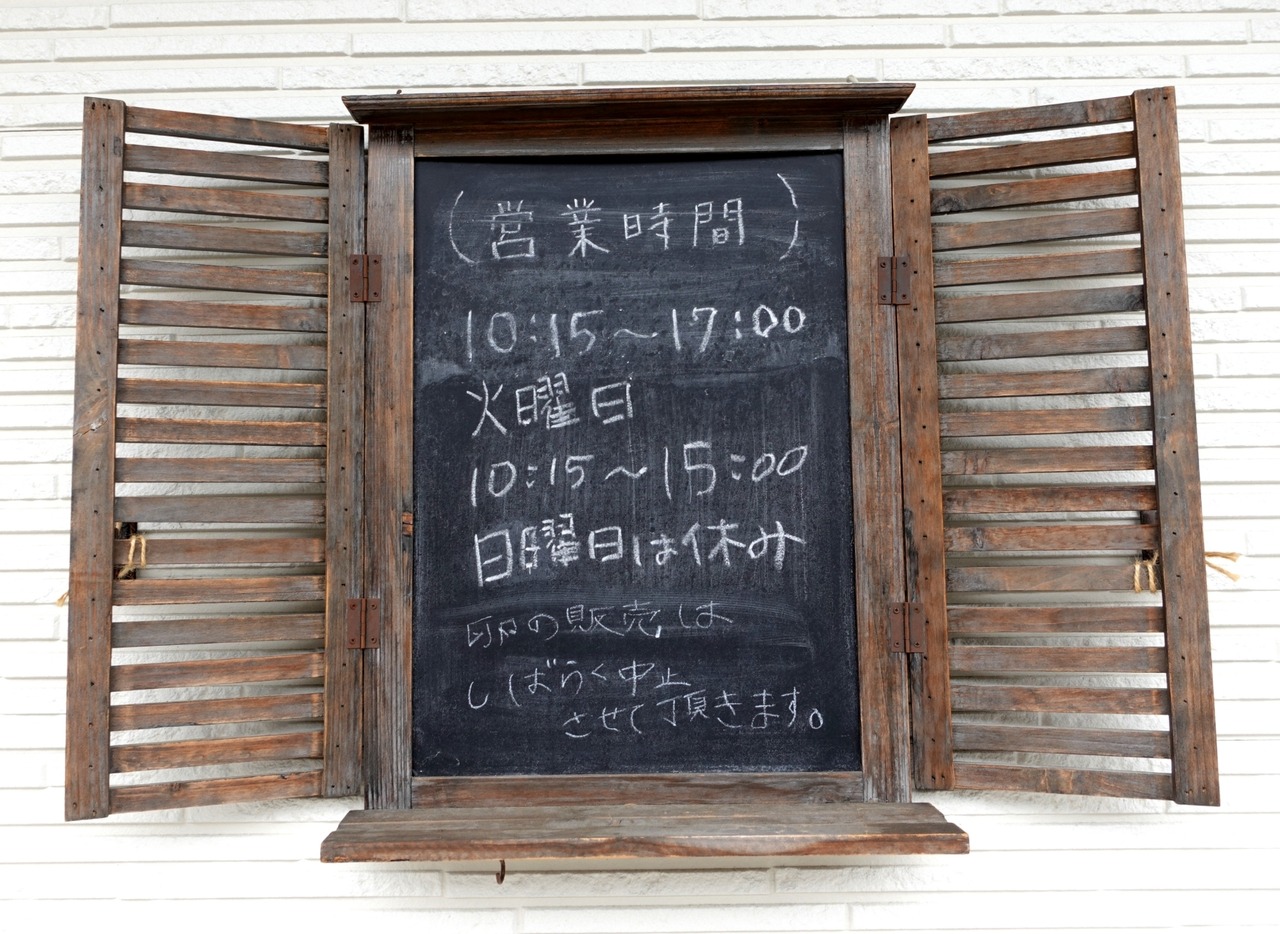 (営業時間)
10:15~17:00
火曜日
10:15~15:00
日曜日は休み
卵の販売は
しばらく中止
させて頂きます。